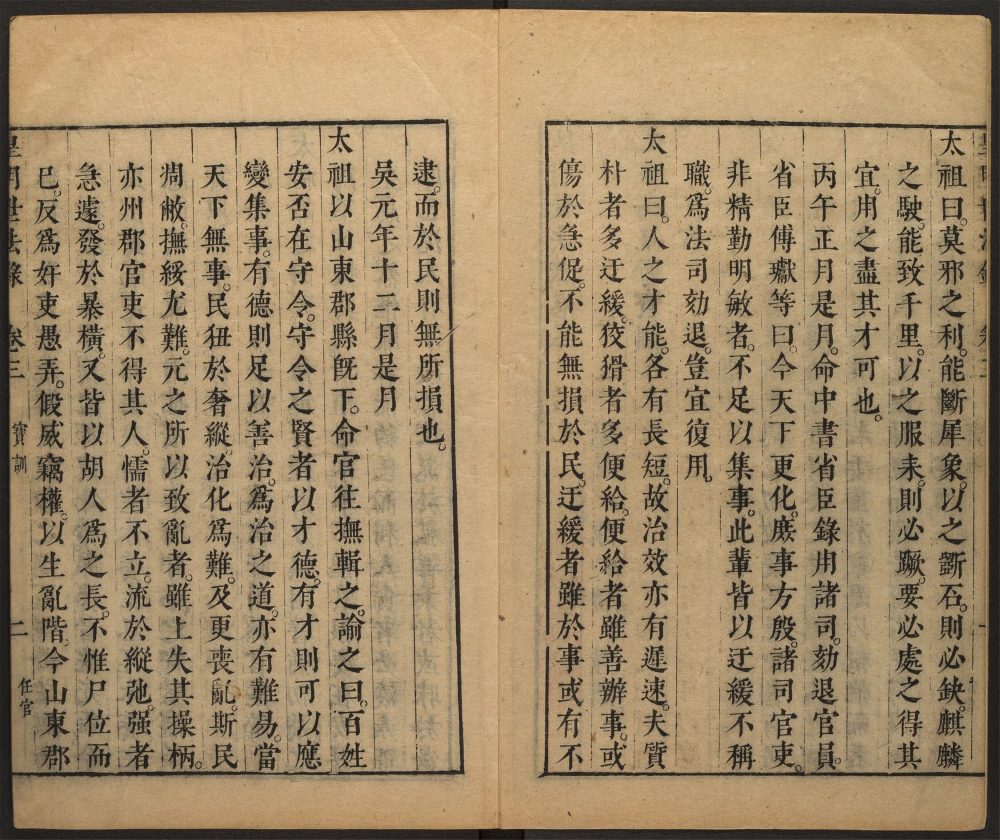 太祖曰。莫邪之利。能斷犀象。以之斵石。則必鈌。麒麟
之駛。能致千里。以之服耒。則必蹶。要必處之得其
宜。用之盡其才可也。
丙午正月是月。命中書省臣錄用諸司。劾退官員。
省臣傅瓛等曰。今天下更化。庶事方殷。諸司官吏。
非精勤明敏者。不足以集事。此輩皆以迂緩不稱
職。爲法司劾退。豈宜復用。
太祖曰。人之才能。各有長短。故治效亦有遲速。夫質
朴者多迂緩。狡猾者多便給。便給者雖善辦事。或
傷於急促。不能無損於民。迂緩者雖於事或有不
逮。而於民則無所損也。
吳元年十二月是月
太祖以山東郡縣旣下。命官往撫輯之。諭之曰。百姓
安否在守令。守令之賢者以才德。有才則可以應
變集事。有德則足以善治。爲治之道。亦有難易。當
天下無事。民狃於奢縱。治化爲難。及更喪亂。斯民
凋敝。撫綏尤難。元之所以致亂者。雖上失其操柄。
亦州郡官吏不得其人。懦者不立。流於縱弛。强者
急遽。發於暴橫。又皆以胡人爲之長。不惟尸位而
巳。反爲奸吏愚弄。假威竊權。以生亂階。今山東郡
皇明世法錄 卷三 寶訓 二 任官